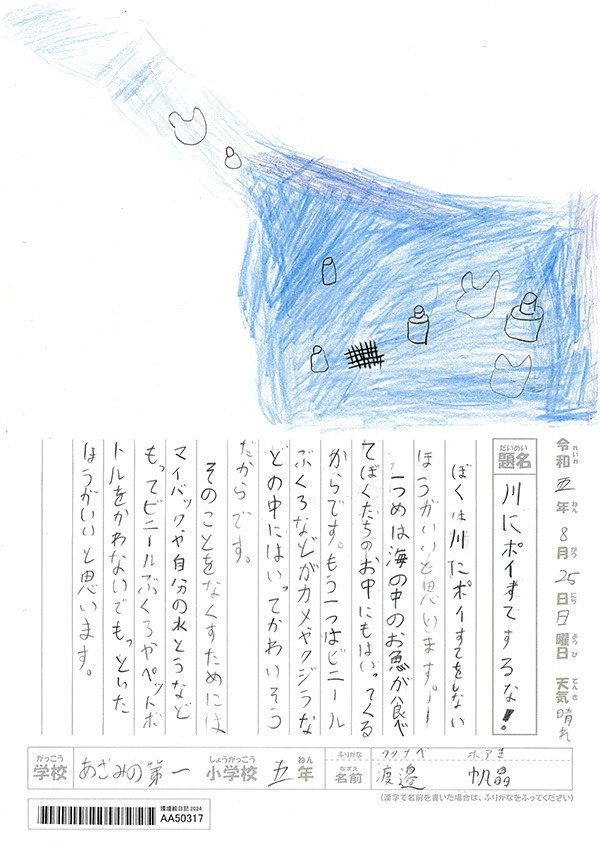 令和五年8月25日日曜日 天気晴れ
れいわ ねん がつ にち ようび てんき
だいめい
題名 川にポイすてするな!
ぼくは川にポイすてをしない
ほうがいいと思います。一
つめは海の中のお魚が食べ
てぼくだちのお中にもはいってくる
からです。もう一つはビニール
ぶくろなどがカメやクジラな
どの中にはいってかわいそう
だからです。
そのことをなくすためには
マイバックや自分の水とうなど
もってビニールぶくろやペットボ
トルをかわないでもっといた
ほうがいいと思います。
がっこう しょうがっこう ねん
学校 あざみの第一 小学校 五年
ふりがな ワタナベ ホアき
なまえ
名前 渡邉 帆晶
(漢字で名前を書いた場合は、ふりがなをふってください)
環境絵日記2024
AA50317